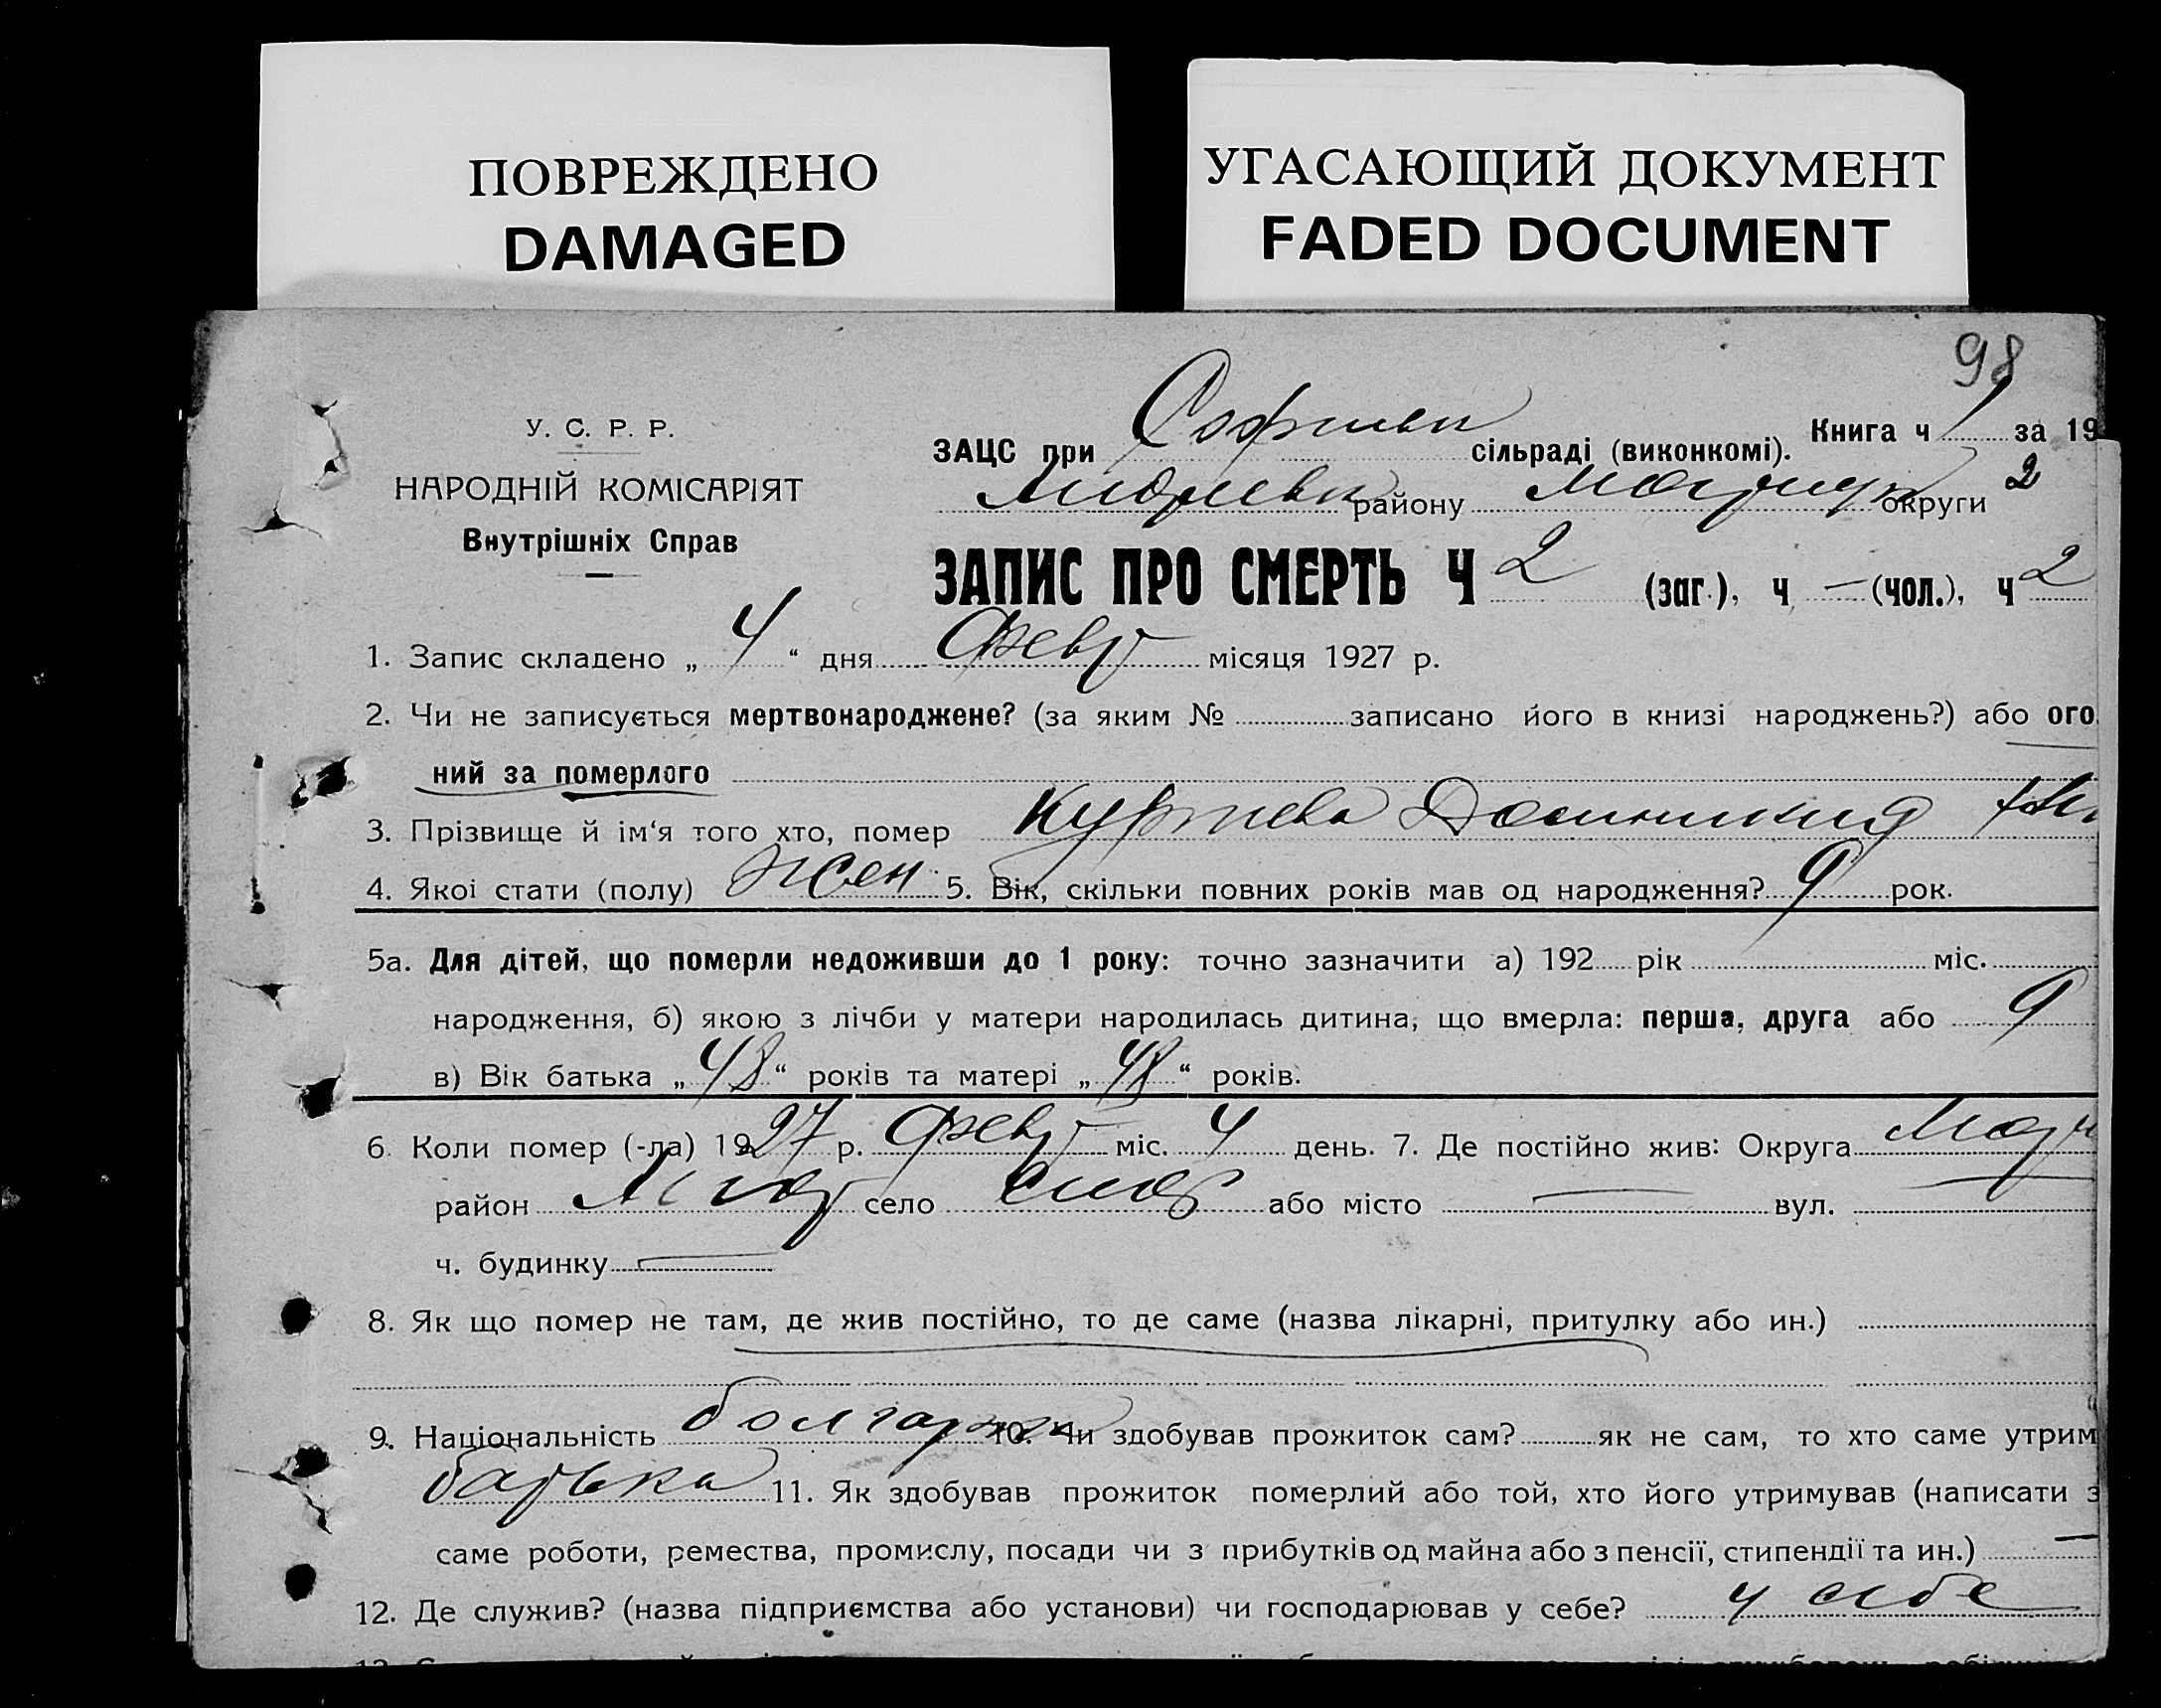 ПОВРЕЖДЕНО
DAMAGED
УГАСАЮЩИЙ ДОКУМЕНТ
FADED DOCUMENT
98
У. С. Р. Р.
НАРОДНІЙ КОМІСАРІЯТ
Внутрішніх Справ
Книга ч 1 за 19
ЗАЦС при Софиевк сільраді (виконкомі).
району округи 2
ЗАПИС ПРО СМЕРТЬ Ч 2 (заг.), ч — (чол.), ч 2
1. Запис складено „ 4 “ дня Февр місяця 1927 р.
2. Чи не записується мертвонароджене? (за яким № записано його в книзі народжень?) або ого
ний за померлого
3. Прізвище й ім‘я того хто, помер Куртева Домникия
4. Якої стати (полу) Жен 5. Вік, скільки повних років мав од народження? 9 рок.
5а. Для дітей, що померли недоживши до 1 року: точно зазначити а) 192 рік міс.
народження, б) якою з лічби у матери народилась дитина, що вмерла: перша, друга або 9
в) Вік батька „ 48 “ років та матері „ 48 “ років.
6. Коли помер (-ла) 1927 р. Февр міс. 4 день. 7. Де постійно жив: Округа
район село або місто — вул. —
ч. будинку —
8. Як що помер не там, де жив постійно, то де саме (назва лікарні, притулку або ин.)
9. Національність болгарка 10. Чи здобував прожиток сам? як не сам, то хто саме утрим
батька 11. Як здобував прожиток померлий або той, хто його утримував (написати з
саме роботи, ремества, промислу, посади чи з прибутків од майна або з пенсії, стипендії та ин.) —
12. Де служив? (назва підприємства або установи) чи господарював у себе? у себе